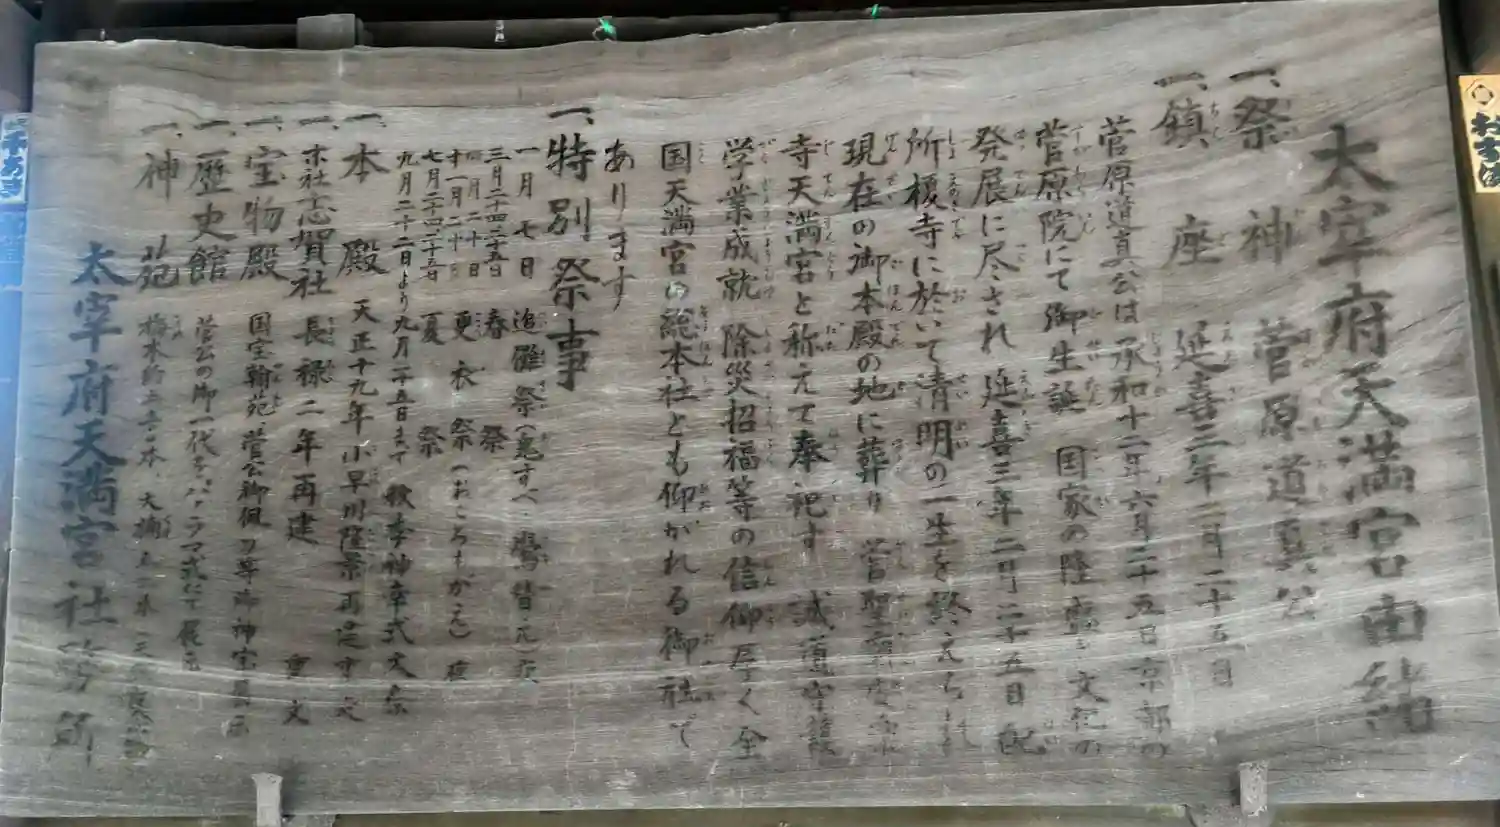 太宰府天満宮由緒
一、祭神 菅原道真公
一、鎮座 延喜三年二月二十五日
菅原道真公は承和十二年六月二十五日京都の
菅原院にて御生誕 国家の隆 文化の
発展に尽され 延喜三年二月二十五日 配
所榎寺に於いて清明の一生を終え
現在の御本殿の地に葬り 菅聖
寺天満宮と称えて奉祀す 誠
学業成就 除災招福等の信仰厚く全
国天満宮の総本社とも仰がれる御社で
あります
一、特別祭事
一月 七日 追儺祭(鬼すべ・鷽替え)
三月二十四二十五日 春 祭
四月二十日
十一月二十日 更衣祭(おころもがえ)
七月二十四二十五日 夏 祭
九月二十二日より九月二十五日まで 秋季神幸式大祭
一、本殿 天正十九年 小早川隆景再建
一、末社志賀社 長禄二年再建 重文
一、宝物殿 国宝翰苑、菅公御佩刀等御神宝展示
一、歴史館 菅公の御一代をパノラマ式にて展示
一、神苑 梅木 本 大樟
太宰府天満宮社務所